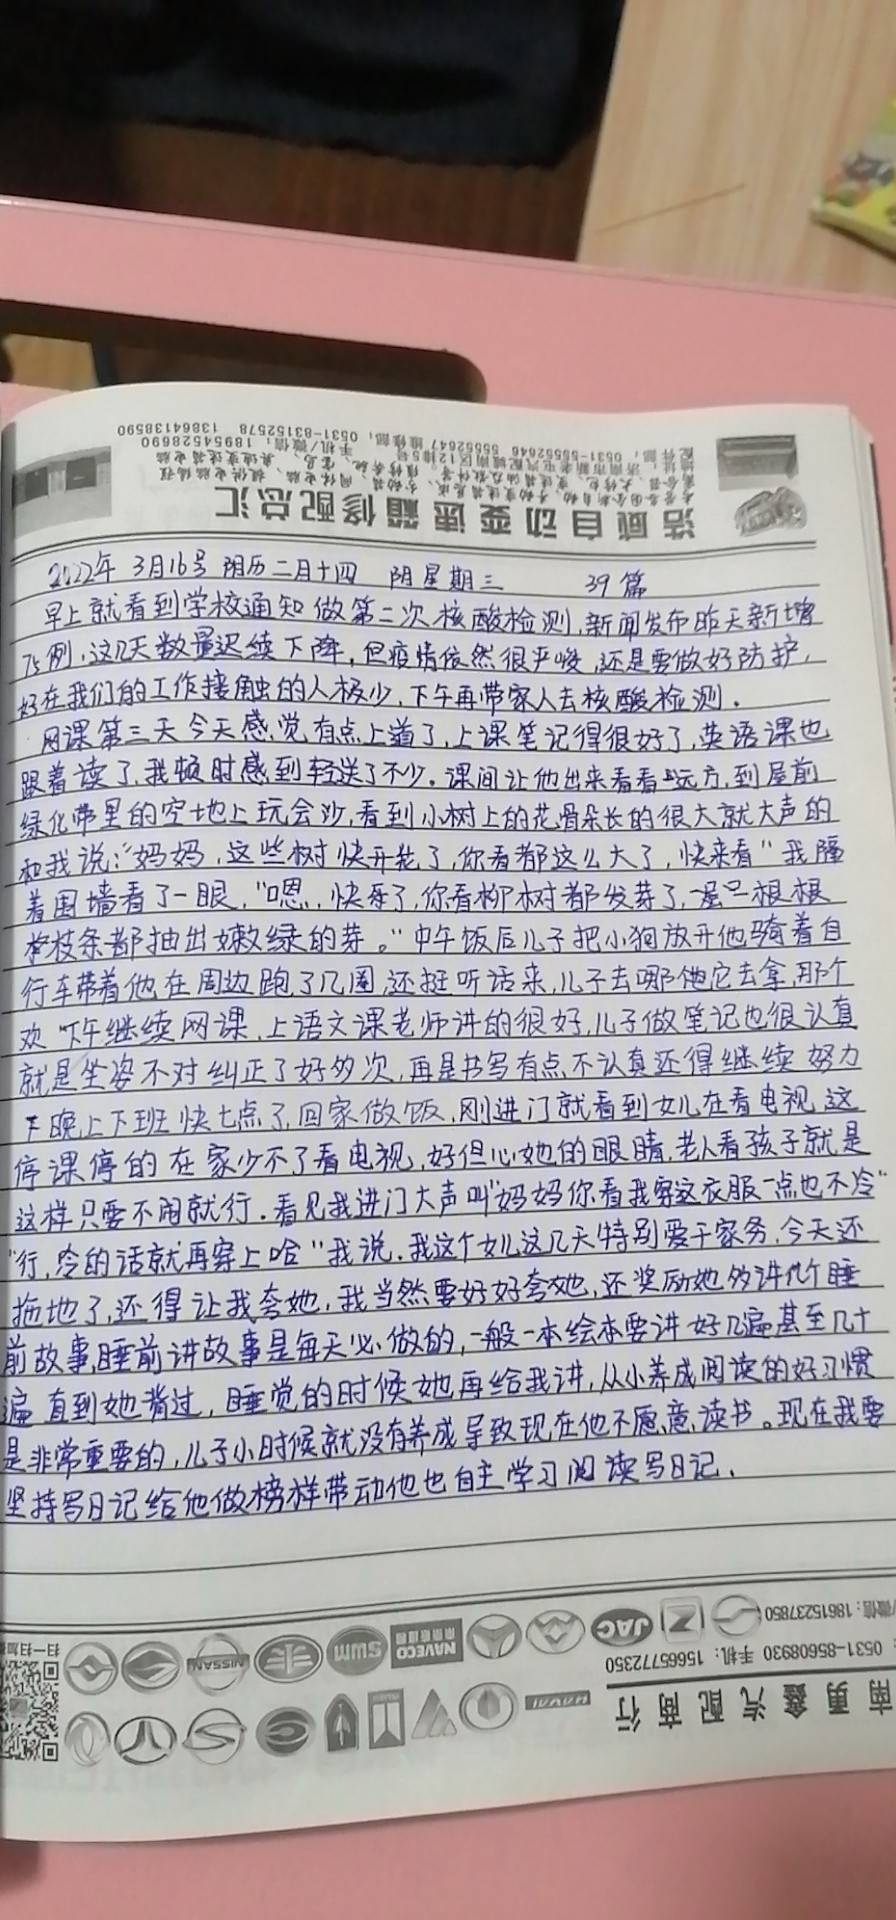 浩威自动变速箱修配总汇
手机/微信：18954528690
0531-83152578 13864138590
0531-55552646 55552647
2022年 3月16号 阴历二月十四 阴星期三 39篇
早上就看到学校通知做第二次核酸检测,新闻发布昨天新增
75例,这几天数量迟续下降,但疫情依然很严峻,还是要做好防护,
好在我们的工作接触的人极少,下午再带家人去核酸检测.
网课第三天今天感觉有点上道了,上课笔记得很好了,英语课也
跟着读了,我顿时感到轻送了不少.课间让他出来看看远方,到屋前
绿化带里的空地上玩会沙,看到小树上的花骨朵长的很大就大声的
和我说:“妈妈,这些树快开花了,你看都这么大了,快来看"我隔
着围墙看了一眼,"嗯,快开了,你看柳树都发芽了,一根根
枝条都抽出嫩绿的芽。"中午饭后儿子把小狗放开他骑着自
行车带着他在周边跑了几圈还挺听话来,儿子去哪他它去拿,那个
欢 下午继续网课,上语文课老师讲的很好,儿子做笔记也很认真
就是坐姿不对纠正了好多次,再是书写有点不认真还得继续努力
晚上下班快七点了,回家做饭,刚进门就看到女儿在看电视,这
停课停的在家少不了看电视,好但心她的眼睛,老人看孩子就是
这样只要不闹就行.看见我进门大声叫"妈妈你看我穿这衣服一点也不冷"
"行,冷的话就再穿上哈"我说.我这个女儿这几天特别爱干家务,今天还
拖地了,还得让我夸她,我当然要好好夸她,还奖励她多讲几个睡
前故事,睡前讲故事是每天必做的,一般一本绘本要讲好几遍甚至几十
遍直到她背过,睡觉的时候她再给我讲,从小养成阅读的好习惯
是非常重要的,儿子小时候就没有养成导致现在他不愿意读书。现在我要
坚持写日记给他做榜样带动他也自主学习阅读写日记.
南勇鑫汽配商行
0531-85608930 手机：15665772350
/微信：18615237850
HAVAL
JAC
NAVECO
SWM
NISSAN
扫一扫加